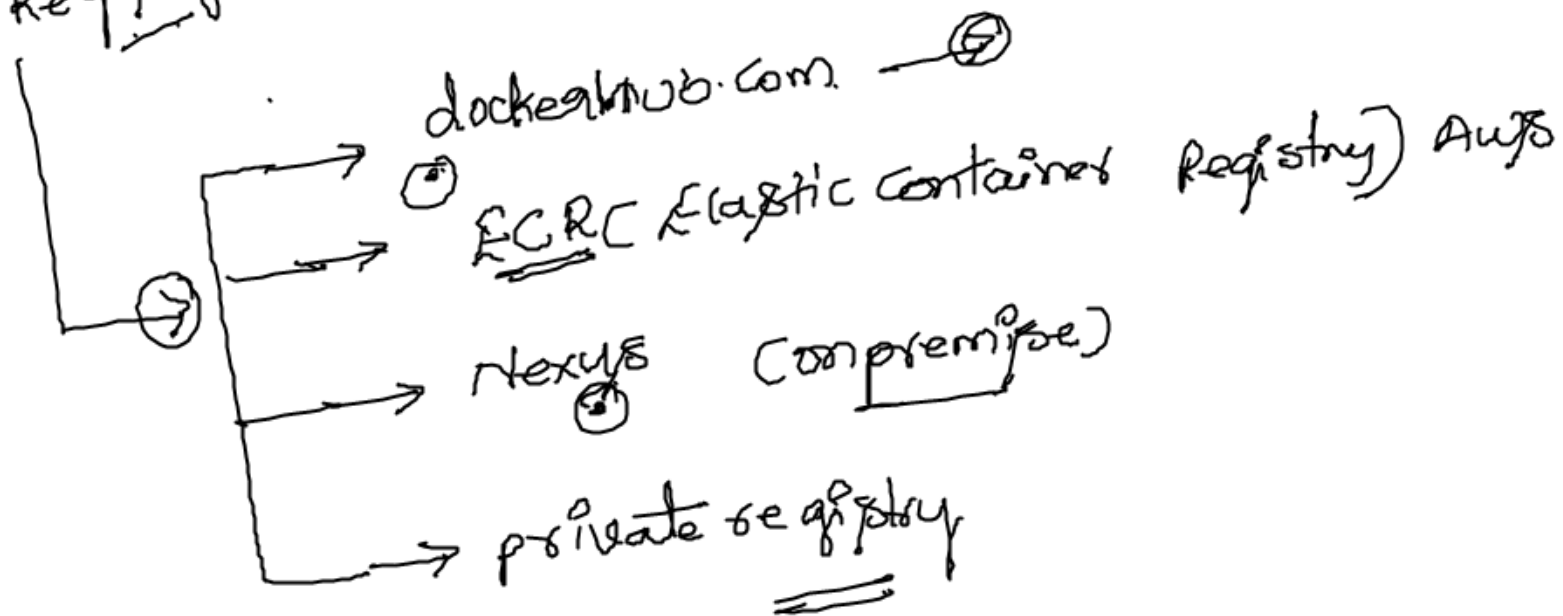 dockerhub.com
ECR (Elastic Container Registry) AWS
Nexus (onpremise)
private registry